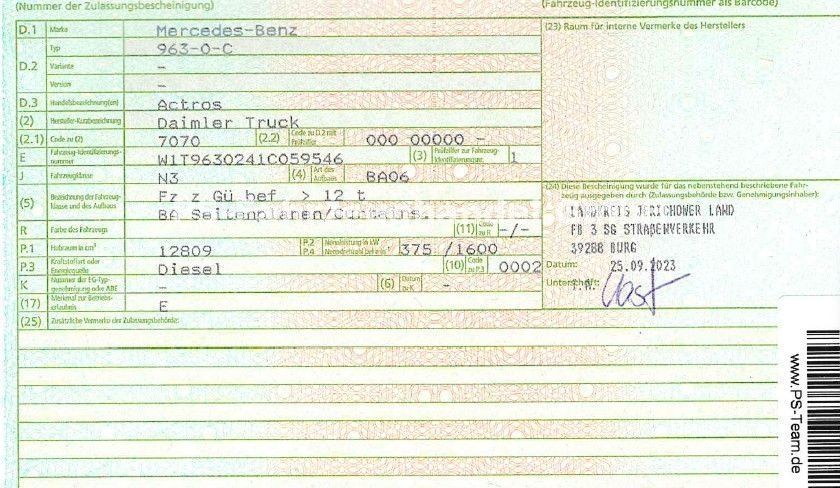 (Nummer der Zulassungsbescheinigung)
(Fahrzeug-Identifizierungsnummer als Barcode)
D.1 Marke Mercedes-Benz
(23) Raum für interne Vermerke des Herstellers
Typ 963-0-C
D.2 Variante –
Version –
D.3 Handelsbezeichnung(en) Actros
(2) Hersteller-Kurzbezeichnung Daimler Truck
(2.1) Code zu (2) 7070 (2.2) Code zu D.2 mit Prüfziffer 000 00000 –
E Fahrzeug-Identifizierungs-
nummer W1T9630241C059546 (3) Prüfziffer zur Fahrzeug-
Identifizierungsnr. 1
J Fahrzeugklasse N3 (4) Art des Aufbaus BA06
(5) Bezeichnung der Fahrzeug-
klasse und des Aufbaus Fz z Gü bef. > 12 t
BA Seitenplanen/Curtains.
R Farbe des Fahrzeugs (11) Code zu R –/–
P.1 Hubraum in cm³ 12809 P.2 P.4 Nennleistung in kW 375 /1600
P.3 Kraftstoffart oder
Energiequelle Diesel (10) Code zu P.3 0002
K Nummer der EG-Typ-
genehmigung oder ABE – (6) Datum zu K –
(17) Merkmal zur Betriebs-
erlaubnis E
(25) Zusätzliche Vermerke der Zulassungsbehörde:
(24) Diese Bescheinigung wurde für das nebenstehend beschriebene Fahr-
zeug ausgegeben durch (Zulassungsbehörde bzw. Genehmigungsinhaber):
LANDKREIS JERICHOWER LAND
FB 3 SG STRAßENVERKEHR
39288 BURG
Datum: 25.09.2023
Unterschrift:
www.PS-Team.de